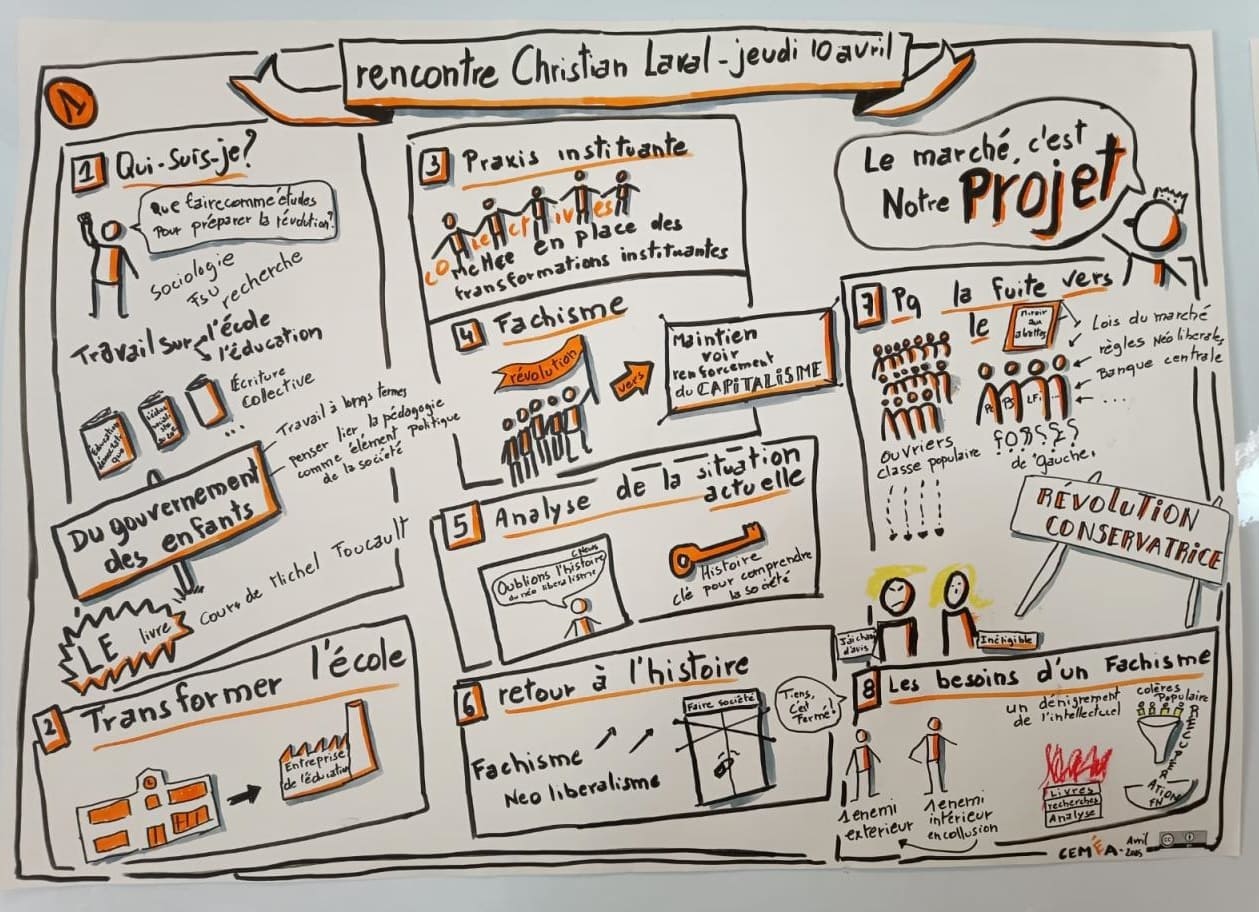 rencontre Christian Laval - jeudi 10 avril
1
1 Qui-suis-je?
Que faire comme études
Pour préparer la révolution?
sociologie
FSU
recherche
Travail sur l'école
l'éducation
Éducation
démocratique
Écriture
Collective
...
Travail à longs termes
penser lier la pédagogie
comme élément politique
de la société
Du gouvernement
des enfants
LE livre
Cours de Michel Foucault
2 Transformer l'école
Entreprise
de l'éducation
3 Praxis instituante
COLLECTIVES
Mettre en place des
transformations instituantes
4 Fachisme
révolution
vers
Maintien
voir
renforcement
du CAPITALISME
5 Analyse de la situation
actuelle
CNews
Oublions l'histoire
du néo liberalisme
Histoire
clé pour comprendre
la société
6 retour à l'histoire
Fachisme
Neo liberalisme
Faire société
Tiens,
c'est
Fermé!
Le marché, c'est
Notre Projet
7 Pq la fuite vers
le
Miroir
aux
alouettes
Lois du marché
règles Néo liberales
Banque centrale
...
PS LFI ...
ouvriers
classe populaire
de "gauche"
RÉVOLUTION
CONSERVATRICE
J'ai changé
d'avis
Inéligible
8 Les besoins d'un Fachisme
1 enemi
extérieur
1 enemi
intérieur
en collusion
un dénigrement
de l'intellectuel
Livres
recherches
Analyse
colères
Populaire
RÉCUPÉRATION
FN
CEMÉA - Avril
2025
cc